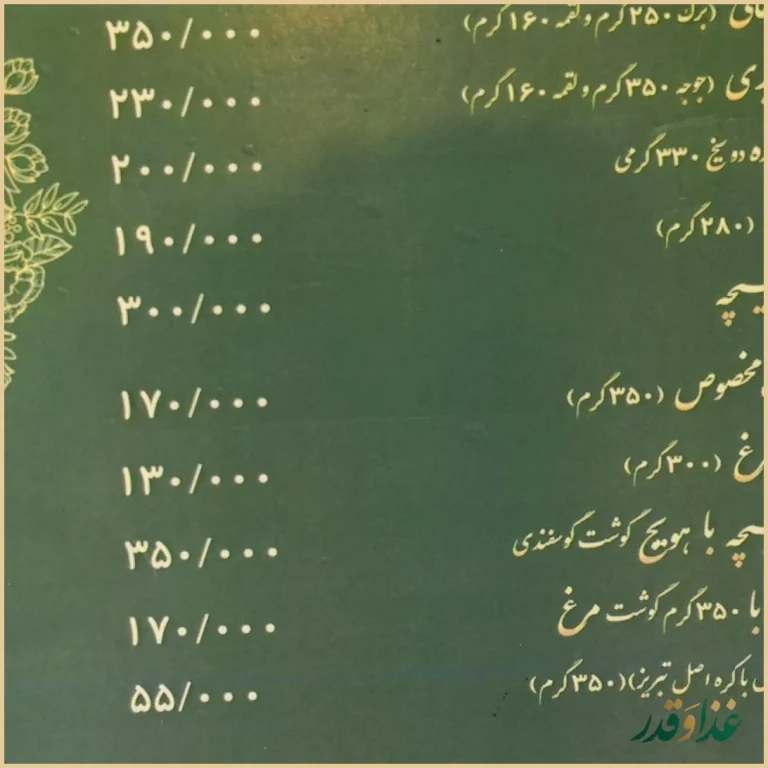 (برگ ۲۵۰ گرم و لقمه ۱۶۰ گرم) ۳۵۰/۰۰۰
(جوجه ۳۵۰ گرم و لقمه ۱۶۰ گرم) ۲۳۰/۰۰۰
دو سیخ ۳۳۰ گرمی ۲۰۰/۰۰۰
(۲۸۰ گرم) ۱۹۰/۰۰۰
۳۰۰/۰۰۰
مخصوص (۳۵۰ گرم) ۱۷۰/۰۰۰
(۳۰۰ گرم) ۱۳۰/۰۰۰
با هویج گوشت گوسفندی ۳۵۰/۰۰۰
با ۳۵۰ گرم گوشت مرغ ۱۷۰/۰۰۰
باکره اصل تبریز)(۳۵۰ گرم) ۵۵/۰۰۰
غذا و قدر